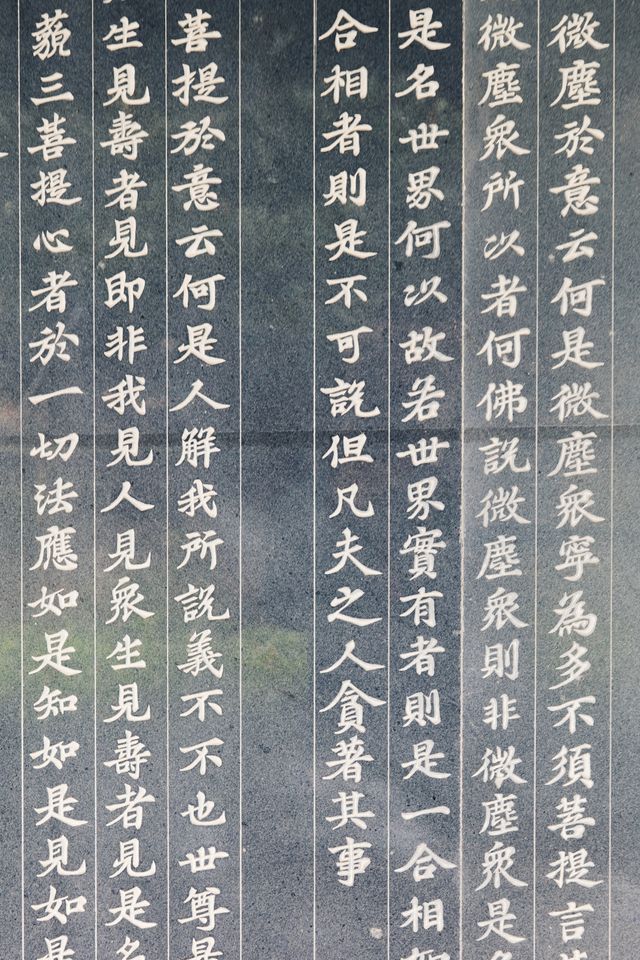 微塵於意云何是微塵眾寧為多不須菩提言
微塵眾所以者何佛說微塵眾則非微塵眾是名
是名世界何以故若世界實有者則是一合相如
合相者則是不可說但凡夫之人貪著其事
菩提於意云何是人解我所說義不不也世尊是
生見壽者見即非我見人見眾生見壽者見是名
藐三菩提心者於一切法應如是知如是見如是